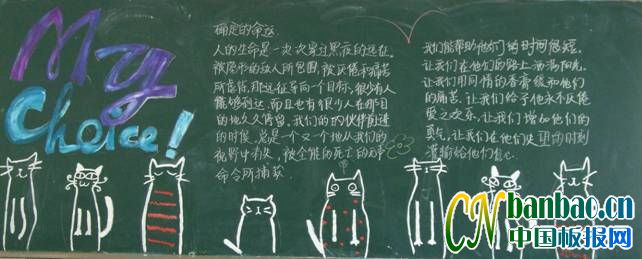 My
Choice!
确定的命运.
人的生命是一次次穿过黑夜的远征.
被隐形的敌人所包围,被疲倦和痛苦
所煎熬,那远征奔向一个目标,很少有人
能够到达,而且也有很少人在那目
的地久久停留,我们的伙伴前进
的时候,总是一个又一个地从我们的
视野中消失,被全能的死亡的无声
命令所捕获.
我们能帮助他们的时间很短.
让我们在他们的路上洒满阳光,
让我们用同情的香膏缓和他们
的痛苦,让我们给予他永不厌倦
爱之欢乐,让我们增加他们的
勇气,让我们在他们失望的时刻
灌输给他们信心.
CNbanbao.cn
中国板报网